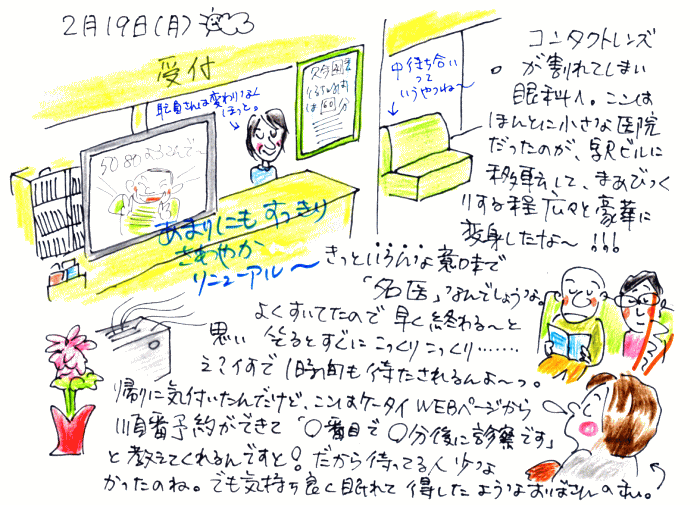 2月19日(月)
受付
職員さんは変わりなく
ほっと。
5080よろこんで〜
は 60 分
中待ち合い
って
いうやつね〜
コンタクトレンズ
が割れてしまい
眼科へ。ここは
ほんとに小さな医院
だったのが、駅ビルに
移転して、まあびっく
りする程広々と豪華に
変身したな〜!!!
あまりにもすっきり
さわやか
リニューアル〜
きっといろいろな意味で
「名医」なんでしょうな。
よくすいてたので早く終わる〜と
思い 坐るとすぐにこっくりこっくり……
え?イすで1時間も待たされるんよ〜っ。
帰りに気付いたんだけど、ここはケータイWEBページから
順番予約ができて「〇番目で〇分後に診察です」
と教えてくれるんですと!だから待ってる人少な
かったのね。でも気持ち良く眠れて得したようなおばさんのホ。